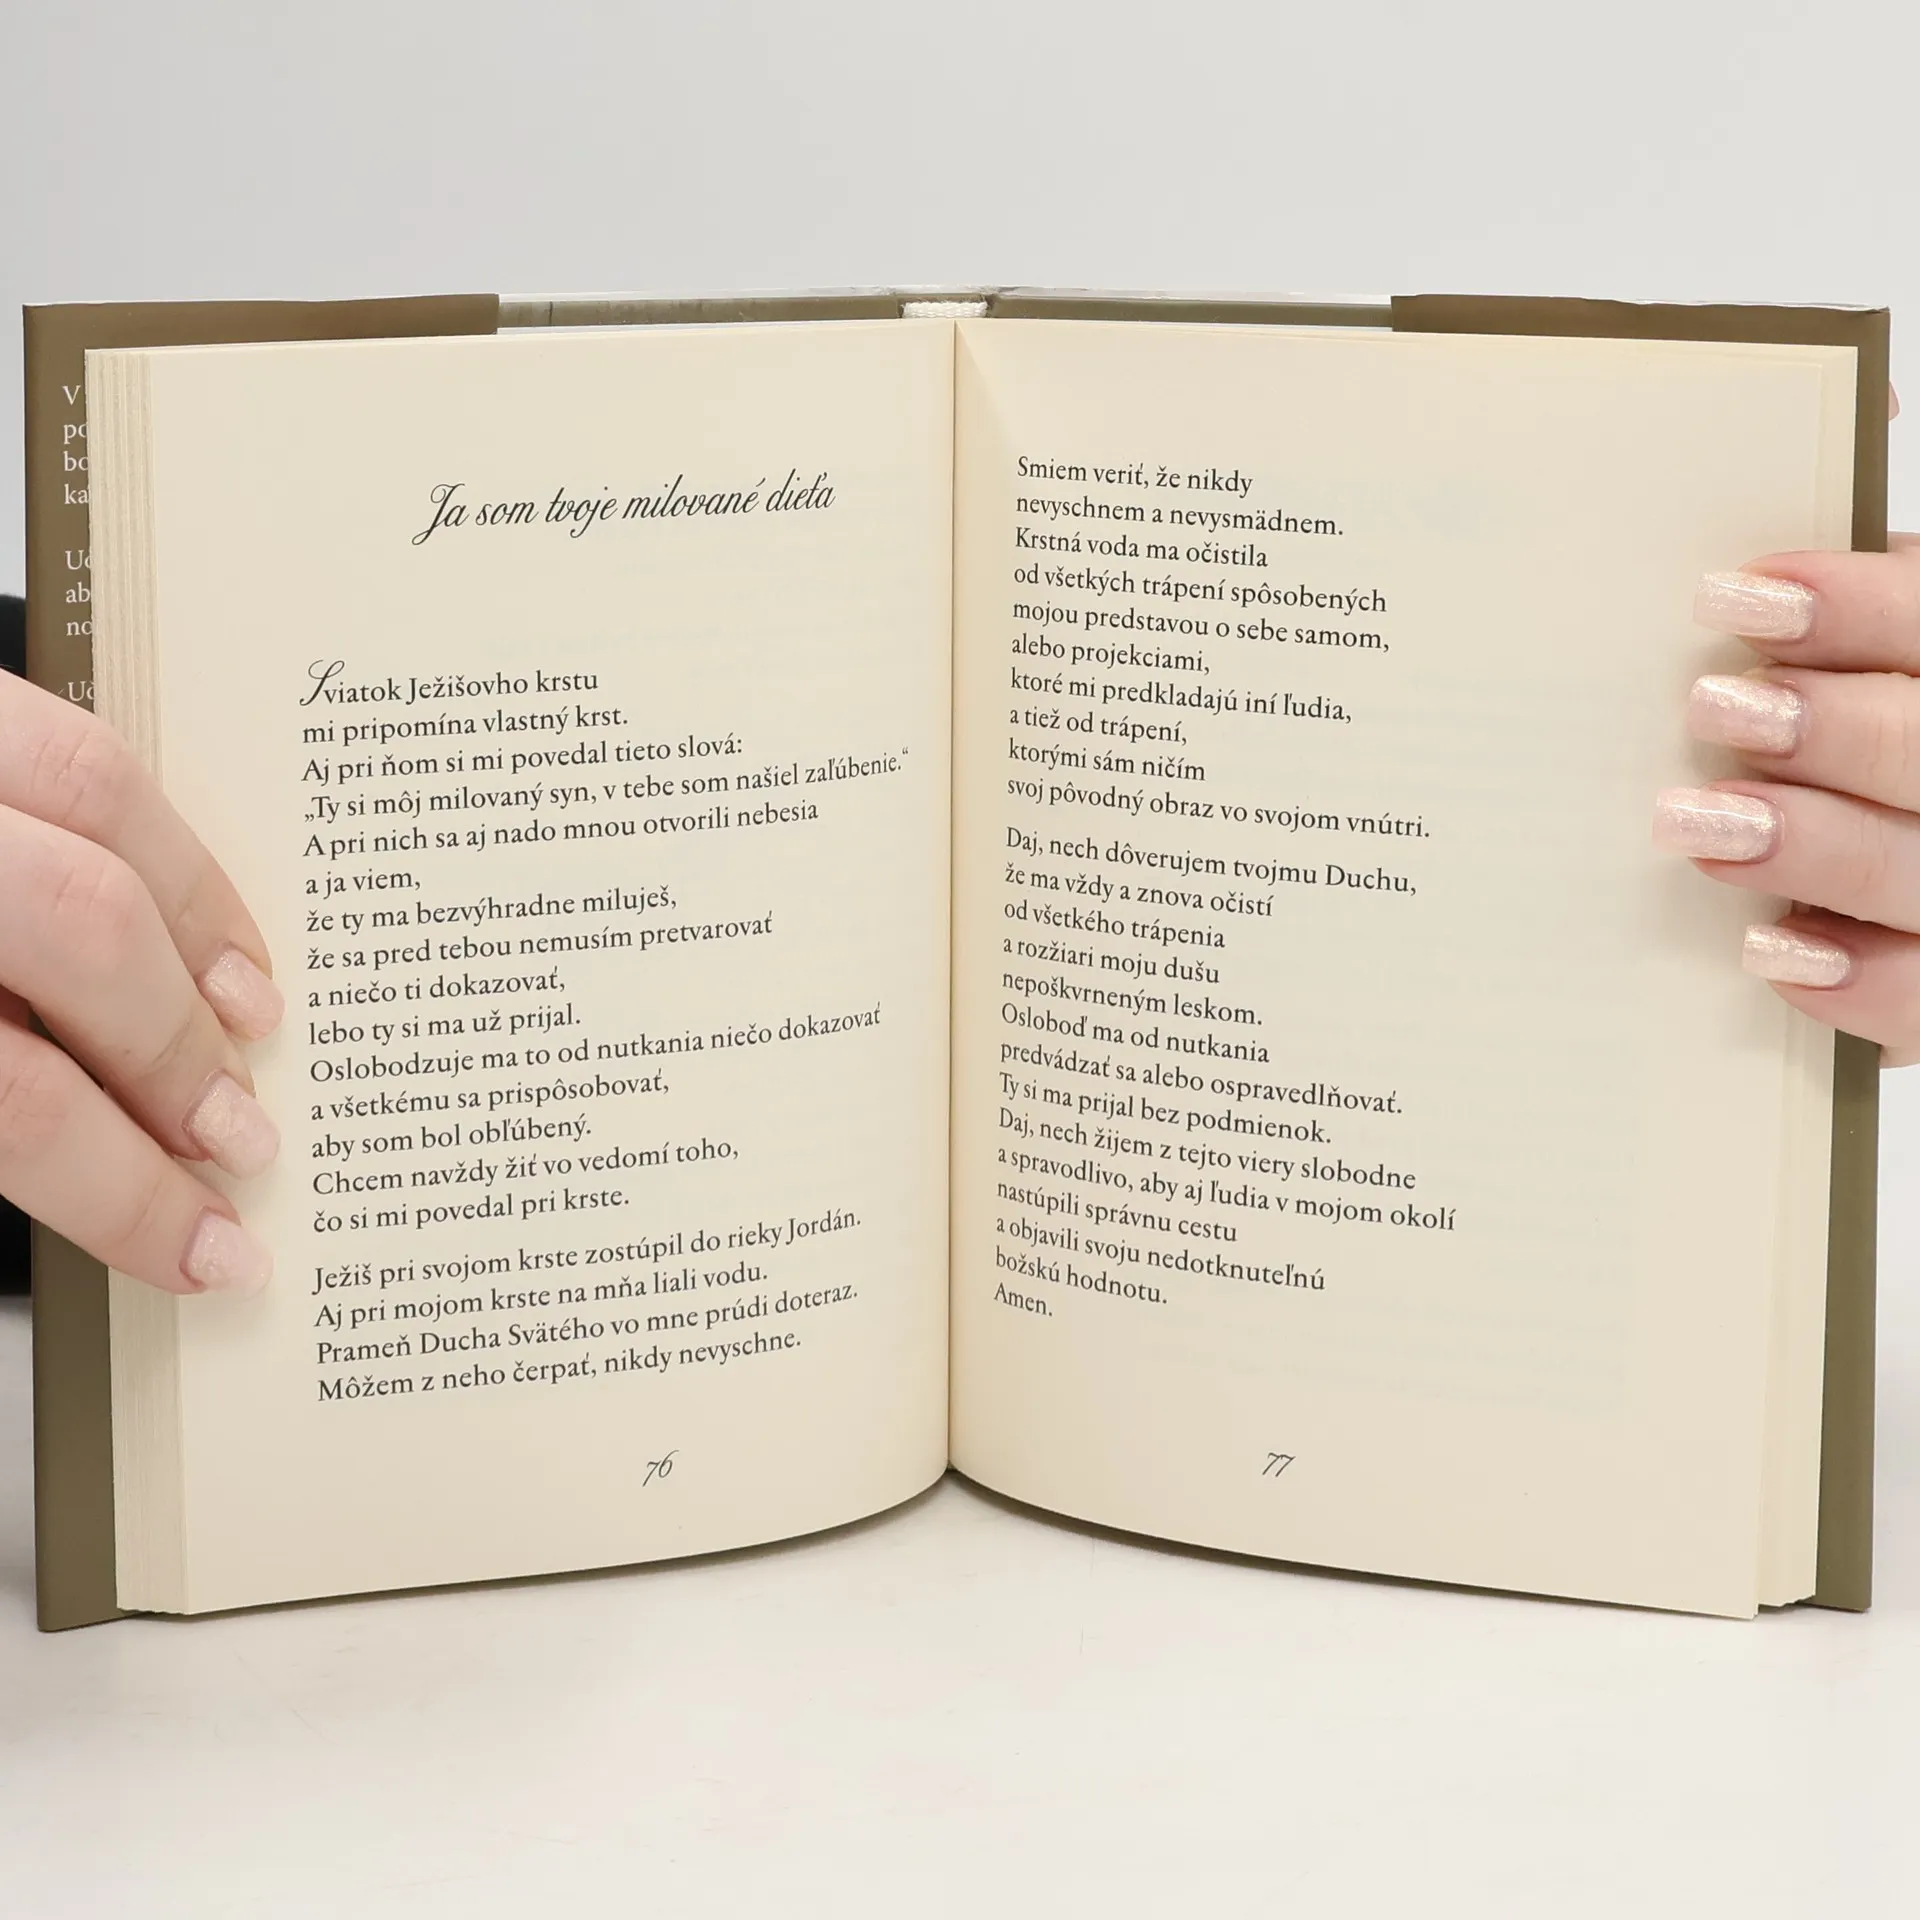 V
Ja som tvoje milované dieťa
Sviatok Ježišovho krstu
mi pripomína vlastný krst.
Aj pri ňom si mi povedal tieto slová:
„Ty si môj milovaný syn, v tebe som našiel zaľúbenie.“
A pri nich sa aj nado mnou otvorili nebesia
a ja viem,
že ty ma bezvýhradne miluješ,
že sa pred tebou nemusím pretvarovať
a niečo ti dokazovať,
lebo ty si ma už prijal.
Oslobodzuje ma to od nutkania niečo dokazovať
a všetkému sa prispôsobovať,
aby som bol obľúbený.
Chcem navždy žiť vo vedomí toho,
čo si mi povedal pri krste.
Ježiš pri svojom krste zostúpil do rieky Jordán.
Aj pri mojom krste na mňa liali vodu.
Prameň Ducha Svätého vo mne prúdi doteraz.
Môžem z neho čerpať, nikdy nevyschne.
76
Smiem veriť, že nikdy
nevyschnem a nevysmädnem.
Krstná voda ma očistila
od všetkých trápení spôsobených
mojou predstavou o sebe samom,
alebo projekciami,
ktoré mi predkladajú iní ľudia,
a tiež od trápení,
ktorými sám ničím
svoj pôvodný obraz vo svojom vnútri.
Daj, nech dôverujem tvojmu Duchu,
že ma vždy a znova očistí
od všetkého trápenia
a rozžiari moju dušu
nepoškvrneným leskom.
Osloboď ma od nutkania
predvádzať sa alebo ospravedlňovať.
Ty si ma prijal bez podmienok.
Daj, nech žijem z tejto viery slobodne
a spravodlivo, aby aj ľudia v mojom okolí
nastúpili správnu cestu
a objavili svoju nedotknuteľnú
božskú hodnotu.
Amen.
77